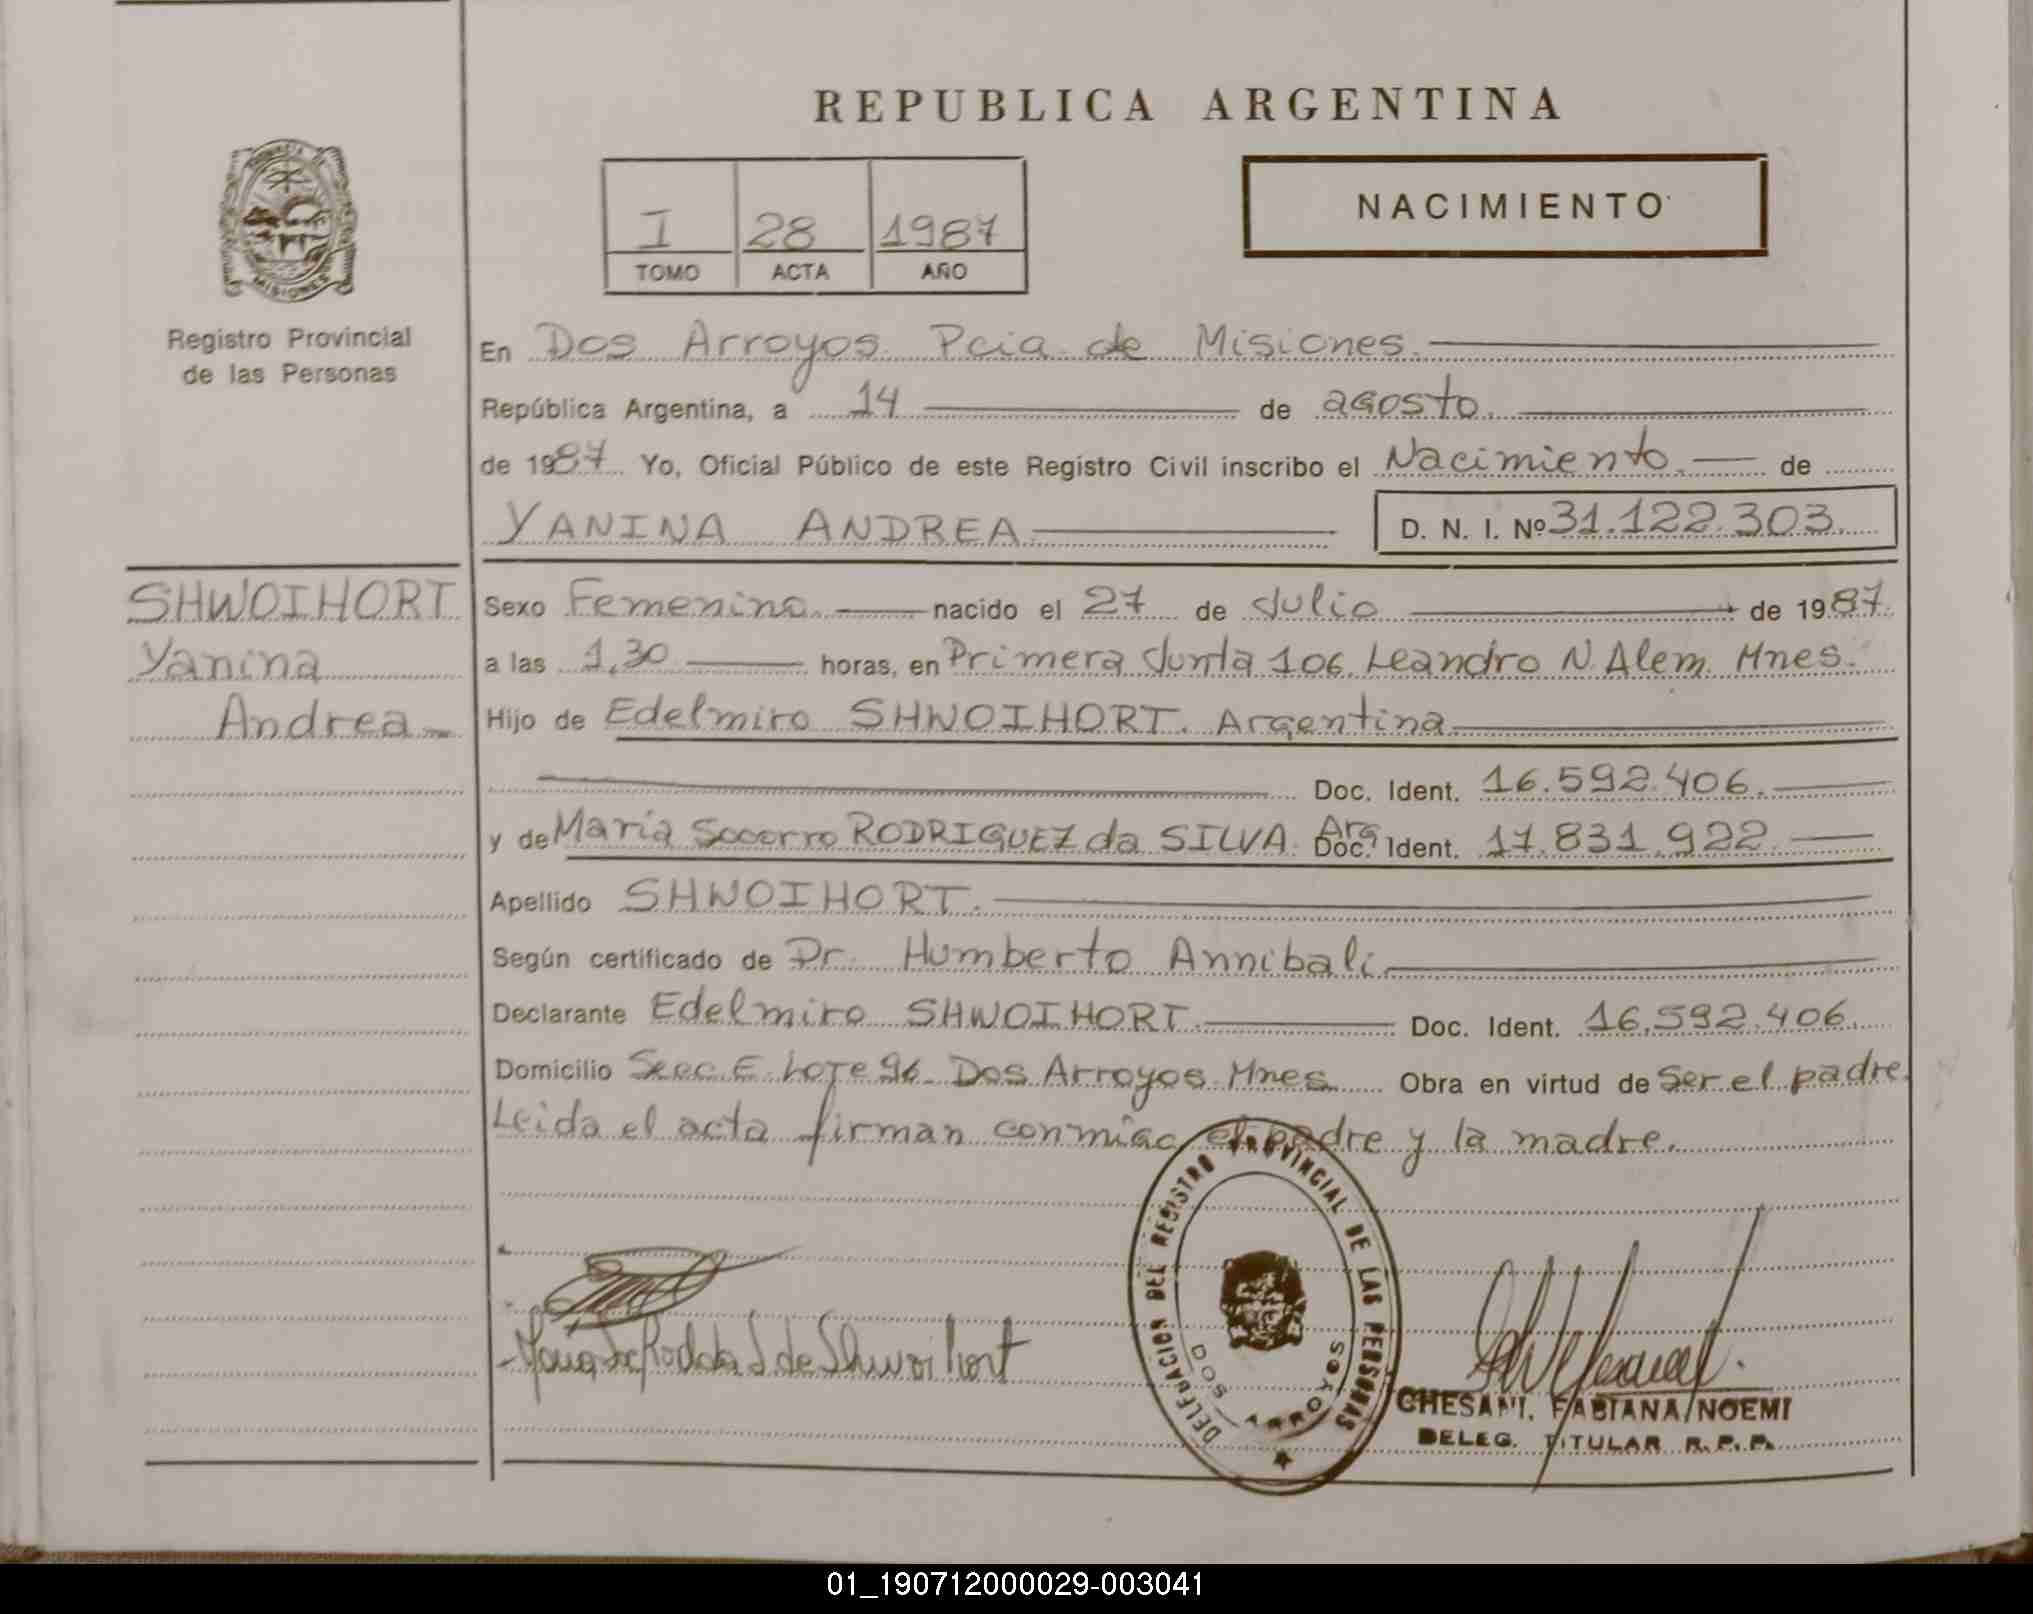 REPUBLICA ARGENTINA
NACIMIENTO
I 28 1987
TOMO ACTA AÑO
PROVINCIA DE
MISIONES
Registro Provincial
de las Personas
En Dos Arroyos Pcia de Misiones.
República Argentina, a 14 de agosto.
de 1987 Yo, Oficial Público de este Registro Civil inscribo el Nacimiento. de
YANINA ANDREA D. N. I. Nº 31.122.303.
SHWOIHORT
Yanina
Andrea
Sexo Femenino. nacido el 27 de Julio de 1987.
a las 1,30 horas, en Primera Junta 106. Leandro N. Alem. Mnes.
Hijo de Edelmiro SHWOIHORT. Argentina
Doc. Ident. 16.592.406.
y de Maria Socorro RODRIGUEZ da SILVA. Arg. Doc. Ident. 17.831.922.
Apellido SHWOIHORT.
Según certificado de Dr. Humberto Annibali.
Declarante Edelmiro SHWOIHORT. Doc. Ident. 16.592.406.
Domicilio Secc. E. Lote 96. Dos Arroyos. Mnes. Obra en virtud de Ser el padre.
Leida el acta firman conmigo el padre y la madre.
de Shwoihort
DELEGACION DEL REGISTRO PROVINCIAL DE LAS PERSONAS
DOS ARROYOS
CHESANI, FABIANA NOEMI
DELEG. TITULAR R.P.P.
01_190712000029-003041